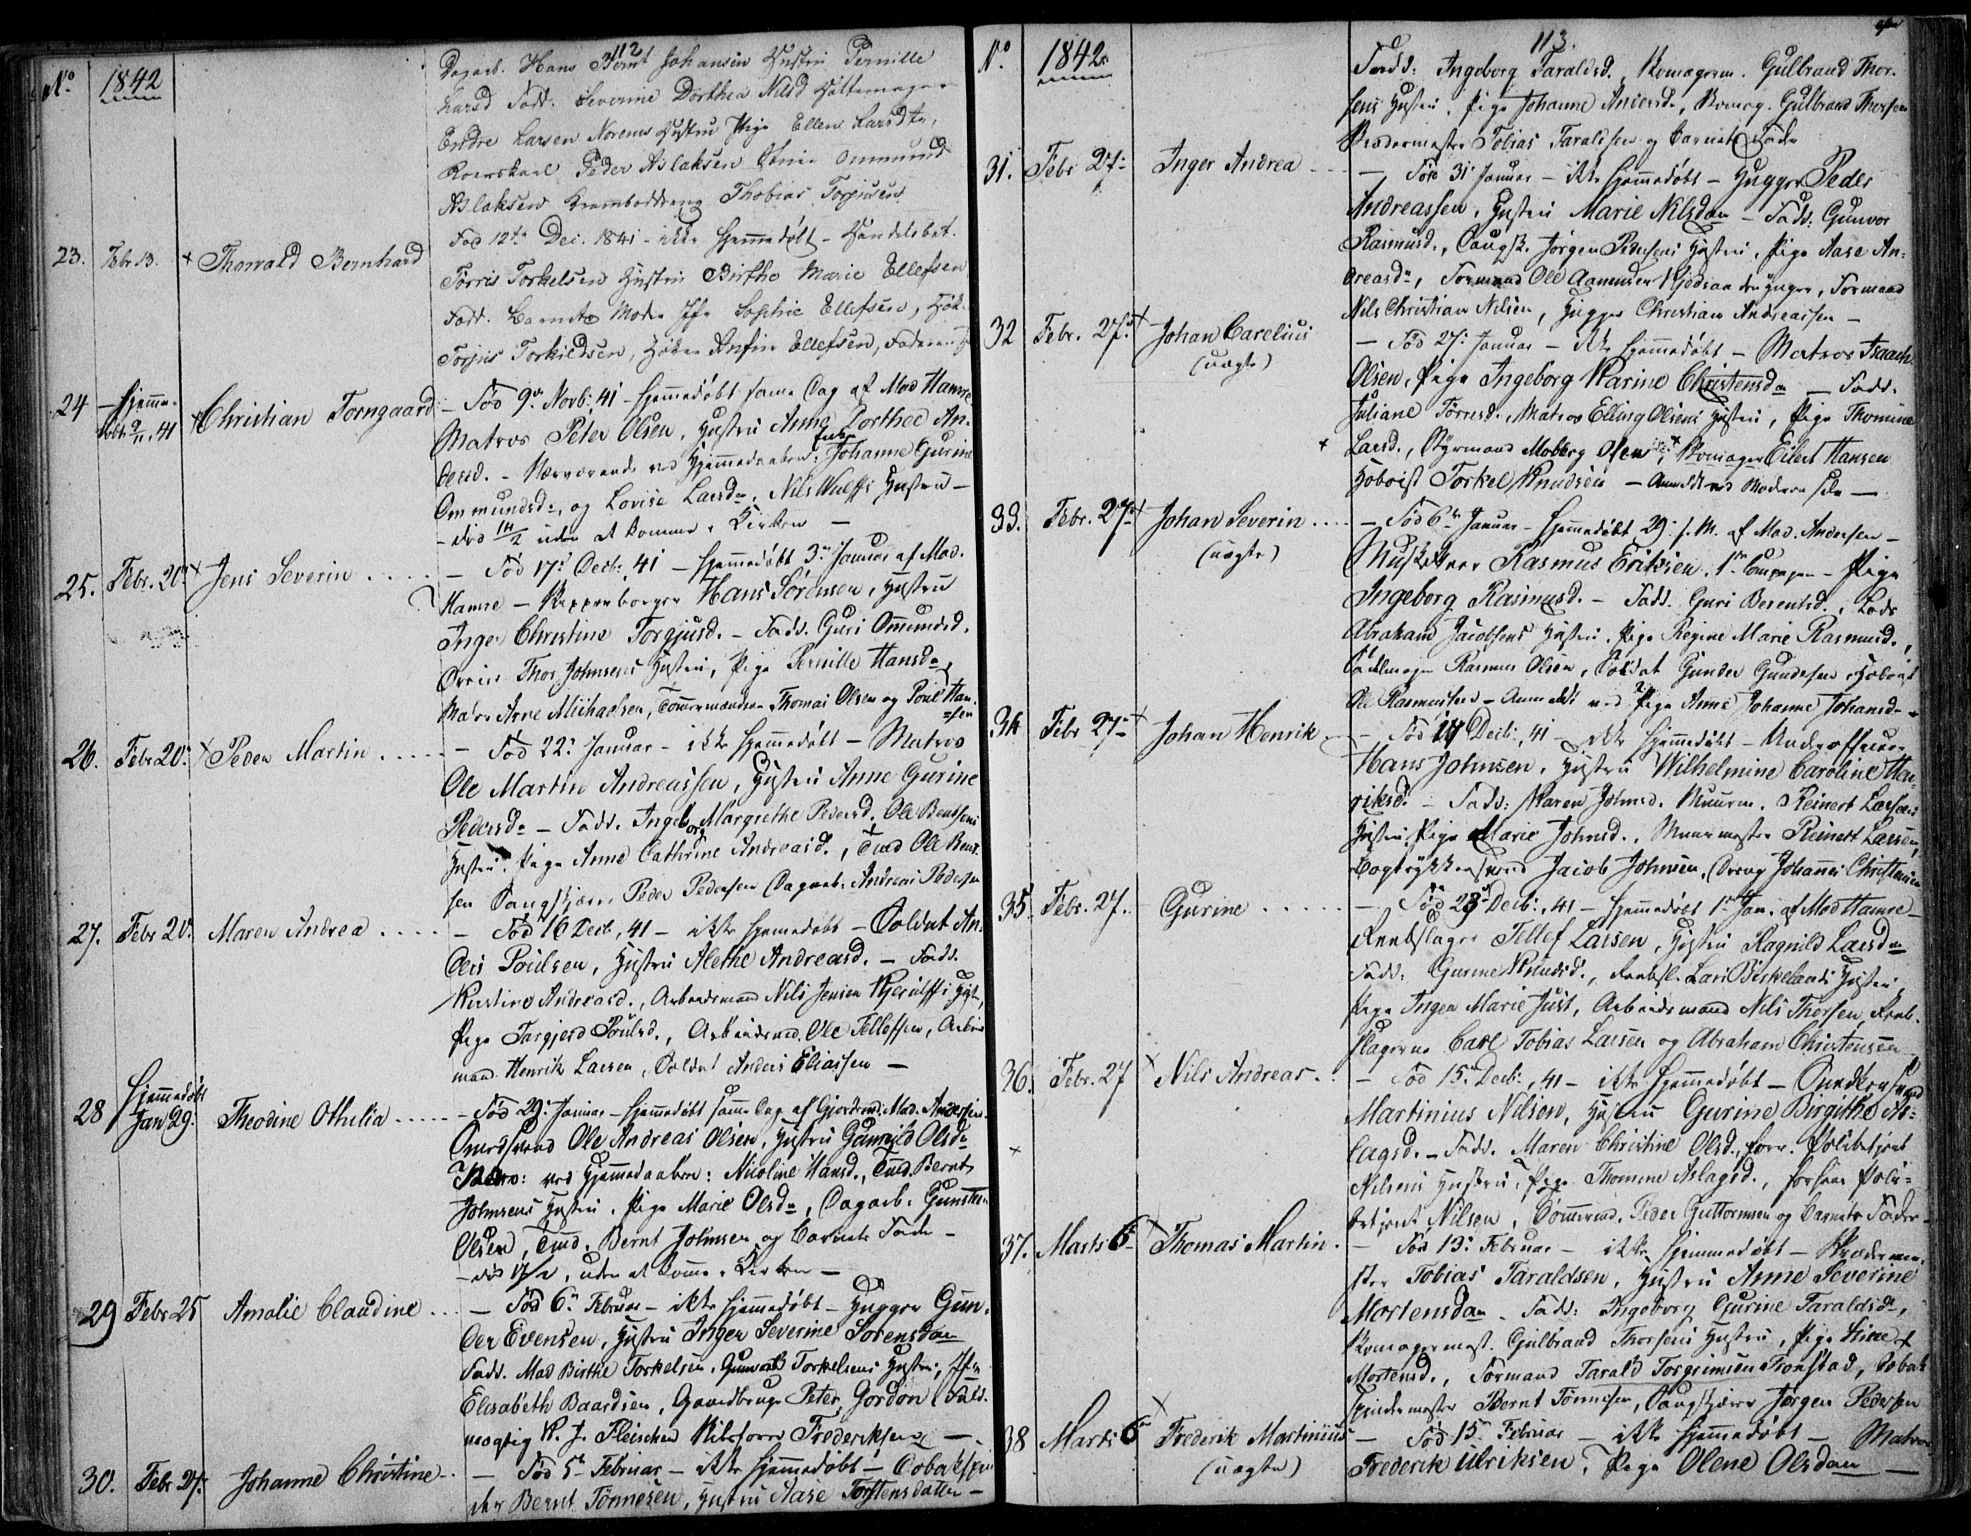 112
No 1842
Dagarb. Hans Bernt Johansen Hustru Pernille
Larsd Fadd. Severine Dorthea Nilsd Hattemager
Endre Larsen Norems Hustru Pige Ellen Larsdtr,
Peder Aslaksen Ommund
Aslaksen Thobias Torjusen
23. Febr 13. × Thorvald Bernhard
Fød 12te Dec. 1841 - ikke hjemmedøbt - Handelsbet.
Tørris Torkelsen Hustru Birthe Marie Ellefsen
Fadd. Barnets Moder Jfr Sophie Ellefsen,
Torjus Torkildsen, Anfin Ellefsen, Faderen
24 Hjemmedøbt 9/11, 41 × Christian Torngaard
- Fød 9de Novb: 41 - hjemmedøbt samme Dag af Mad Hamre
Matros Peter Olsen, Hustru Anne Dorthea An-
dersd. - Nærværende ved Hjemmedaaben: Johanne Gurine
Ommundsd, og Lovise Larsd, Nils Wulffs Hustru -
- død 14/2 uden at komme i Kirken -
25. Febr. 20 × Jens Severin ....
- Fød 17: Decb: 41 - hjemmedøbt 3de Januar af Mad.
Hamre - Hans Sørensen, Hustru
Inger Christine Torgjusd. - Fadd. Guri Omundsd.
Thor Johnsens Hustru, Pige Pernille Hansd,
Matr. Arne Michaelsen, Tømmermændene Thomas Olsen og Poul Han-
sen
26. Febr 20: × Peder Martin ....
- Fød 22: Januar - ikke hjemmedøbt - Matros
Ole Martin Andreassen, Hustru Anne Gurine
Pedersd - Fadd. Ingeborg Margrethe Pedersd, Ole Bentsens
Hustru. Pige Anne Cathrine Andreasd., Tmd Ole Bent-
sen Peder Pedersen Dagarb. Andreas Pedersen
27. Febr 20: Maren Andrea ....
- Fød 16 Decb, 41 - ikke hjemmedøbt - Soldat An-
ders Poulsen, Hustru Alethe Andreasd. - Fadd.
Kirstine Andreasd., Arbeidsmand Nils Jensen Kjerulffs Hustru,
Pige Targjerd Poulsd., Arbeidsmd. Ole Tellefsen, Arbeids-
mand Henrik Larsen, Soldat Anders Eliassen -
28 Hjemmedøbt Jan 29: Theodine Othilia ....
- Fød 29: Januar - hjemmedøbt samme Dag af Gjordemd. Mad. Andersen.
Ole Andreas Olsen, Hustru Gunvild Olsd
ved Hjemmedaaben: Nicoline Hansd., Tmd Bernt
Johnsens Hustru. Pige Marie Olsd, Dagarb.
Olsen, Tmd. Bernt Johnsen og Barnets Fader -
- død 17/2, uden at komme i Kirken -
29 Febr 25 Amalie Claudine ...
- Fød 6te Februar - ikke hjemmedøbt - Hugger Gun-
der Evensen, Hustru Inger Severine Sorensdatter
Fadd. Mad Birthe Torkelsen, Torkelsens Hustru, Jfr
Elisabeth Baardsen, Peter Gordon
K. J. Fleischer Frederiksen -
30. Febr 27: Johanne Christine ..
- Fød 5te Februar - ikke hjemmedøbt - Tobakspin-
der Bernt Tønnesen, Hustru Aase Torstensdatter -
113.
No 1842.
Fadd: Ingeborg Taraldsd. Skomagerm. Gulbrand Thor-
sens Hustru. Pige Johanne Andersd., Skomag. Gulbrand Thorsen
Skrædermester Tobias Taraldsen og Barnets Fader
31. Febr 27: Inger Andrea ...
- Fød 31 Januar - ikke hjemmedøbt - Hugger Peder
Andreassen, Hustru Marie Nilsdatter - Fadd. Gunvor
Rasmusd., Jørgen Pedersens Hustru. Pige Aase An-
dreasd, Formand Ole Aamundsen Kjedsaa den yngre, Formand
Nils Christian Nilsen, Hugger Christian Andreassen -
32 Febr. 27: × Johan Carelius
(uægte)
- Fød 27: Januar - ikke hjemmedøbt - Matros Isaach
Olsen, Pige Ingeborg Karine Christensd - Fadd.
Juliane Tørresd., Matros Elling Olsens Hustru, Pige Thomine
× Larsd., Styrmand Moberg Olsen, Skomager Eilert Hansen
Hoboist Torkel Knudsen - Anmeldt ved Moderen selv -
33. Febr. 27 × Johan Severin ....
(uægte)
- Fød 6te Januar - hjemmedøbt 29: s. M. af Mad. Andersen -
Musketeer Rasmus Eriksen, 1ste Compagni - Pige
Ingeborg Rasmusd. - Fadd. Guri Berentsd., Lods
Abraham Jacobsens Hustru. Pige Regine Marie Rasmusd.,
Sadelmager Rasmus Olsen, Soldat Gunder Gundersen Hoboist
Ole Rasmussen - Anmeldt ved Pige Anne Johanne Johansd -
34 Febr 27 × Johan Henrik ..
- Fød 14 Decb:, 41 - ikke hjemmedøbt - Underofficeer
Hans Johnsen, Hustru Wilhelmine Caroline Hen-
riksd. - Fadd: Karen Johnsd. Muurm. Reinert Larsens
Hustru. Pige Marie Johnsd., Muurmester Reinert Larsen,
Bogtrykkersvend Jacob Johnsen, Dreng Johannes Christensen
35. Febr. 27. Gurine ......
- Fød 28 Decb:, 41 - hjemmedøbt 1ste Jan. af Mad Hamre -
Reebslager Tellef Larsen, Hustru Ragnild Larsd
Fadd: Gurine Knudsd., Reebsl. Lars Birkelands Hustru,
Pige Inger Marie Just, Arbeidsmand Nils Thorsen, Reeb-
slagerne Carl Tobias Larsen og Abraham Christensen
36. Febr. 27 × Nils Andreas ..
- Fød 15. Decb:, 41 - ikke hjemmedøbt - Snedkersvend
Martinius Nilsen, Hustru Gurine Birgithe As-
× lagsd. - Fadd. Maren Christine Olsd., forr. Politibetjent
Nilsens Hustru. Pige Thomine Aslagsd., forhen Politi-
betjent Nilsen, Tømmermd. Peder Guttormsen og Barnets Fader -
37. Marts 6 × Thomas Martin .
- Fød 13: Februar - ikke hjemmedøbt - Skrædermes-
ter Tobias Taraldsen, Hustru Anne Severine
Mortensd. Fadd: Ingeborg Gurine Taraldsd,
Skomagermest. Gulbrand Thorsens Hustru, Pige Sine
Mortensd., Formand Tarald Torgrimsen Fronstad, Tobak-
spindermester Bernt Tønnesen, Jørgen Pedersen
38 Marts 6 × Frederik Martinius
(uægte)
- Fød 15. Februar - ikke hjemmedøbt - Matros
Frederik Ulriksen, Pige Olene Olsdatter -